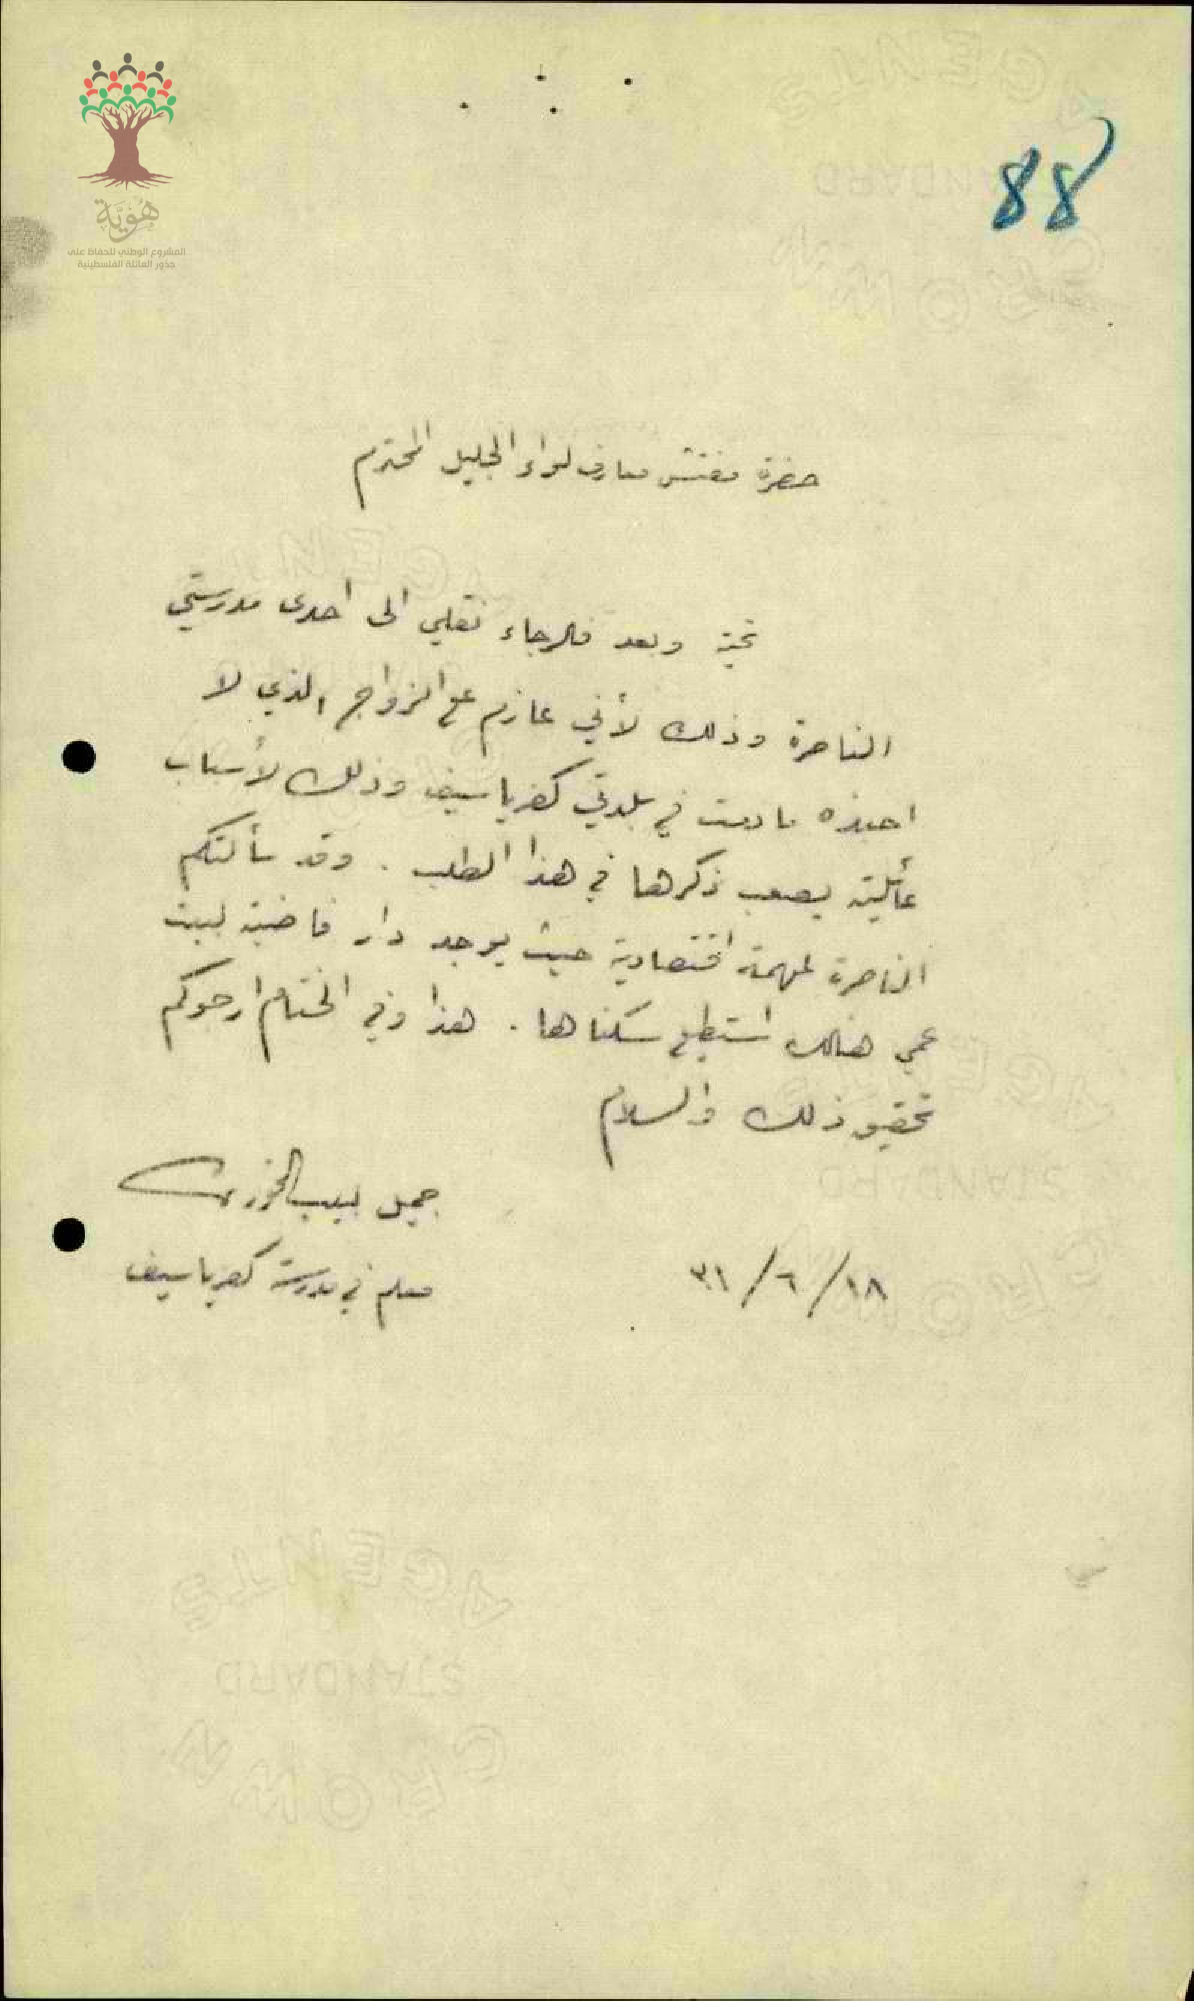 هُوِيَّة
المشروع الوطني للحفاظ على
جذور العائلة الفلسطينية
88
حضرة مفتش معارف لواء الجليل المحترم
تحية وبعد فالرجاء نقلي الى احدى مدرستي
الناصرة وذلك لأني عازم على الزواج الذي لا
احبذه ما دمت في بلدتي كفرياسيف وذلك لأسباب
عائلية يصعب ذكرها في هذا الطلب . وقد سألتكم
الناصرة لمهمة اقتصادية حيث يوجد دار فاضية لبيت
عمي هنالك استطيع سكناها . هذا وفي الختام ارجوكم
تحقيق ذلك والسلام
جميل لبيب الخوري
معلم في مدرسة كفرياسيف
١٨/٦/٣١
AGENTS
STANDARD
CROWN